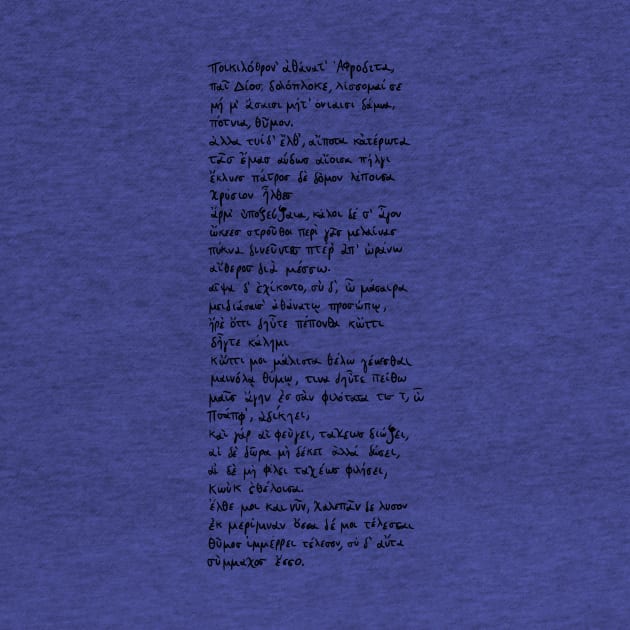 ποικιλόθρον' ἀθάνατ' Ἀφροδιτα,
παῖ Δίοσ, δολόπλοκε, λίσσομαί σε
μή μ' ἄσαισι μήτ' ὀνίαισι δάμνα,
πότνια, θῦμον.
ἀλλα τυίδ' ἔλθ', αἴποτα κἀτέρωτα
τᾶσ ἔμασ αὔδωσ αἴοισα πήλγι
ἔκλυεσ πάτροσ δὲ δόμον λίποισα
χρύσιον ἦλθεσ
ἄρμ' ὐποζεύξαια, κάλοι δέ σ' ἆγον
ὤκεεσ στροῦθοι περὶ γᾶσ μελαίνασ
πύκνα δινεῦντεσ πτέρ' ἀπ' ὠράνω
αἴθεροσ διὰ μέσσω.
αἶψα δ' ἐχίκοντο, σὺ δ', ὦ μάσαιρα
μειδιάσαισ' ἀθάνατῳ προσώπῳ,
ἤρἐ ὄττι δηὖτε πέπονθα κὤττι
δἦγτε κάλημι
κὤττι μοι μάλιστα θέλω γένεσθαι
μαινόλᾳ θύμῳ, τινα δηὖτε πείθω
μαῖσ ἄγην ἐσ σὰν φιλότατα τισ τ, ὦ
Πσάπφ', ἀδικήει,
καὶ γάρ αἰ φεύγει, ταχεωσ διώξει,
αἰ δὲ δῶρα μὴ δέκετ ἀλλά δώσει,
αἰ δὲ μὴ φίλει ταχέωσ φιλήσει,
κωὐκ ἐθέλοισα.
ἔλθε μοι καὶ νῦν, χαλεπᾶν δε λυσον
ἐκ μερίμναν ὄσσα δέ μοι τέλεσσαι
θῦμοσ ἰμμερρει τέλεσον, σύ δ' αὔτα
σύμμαχοσ ἔσσο.